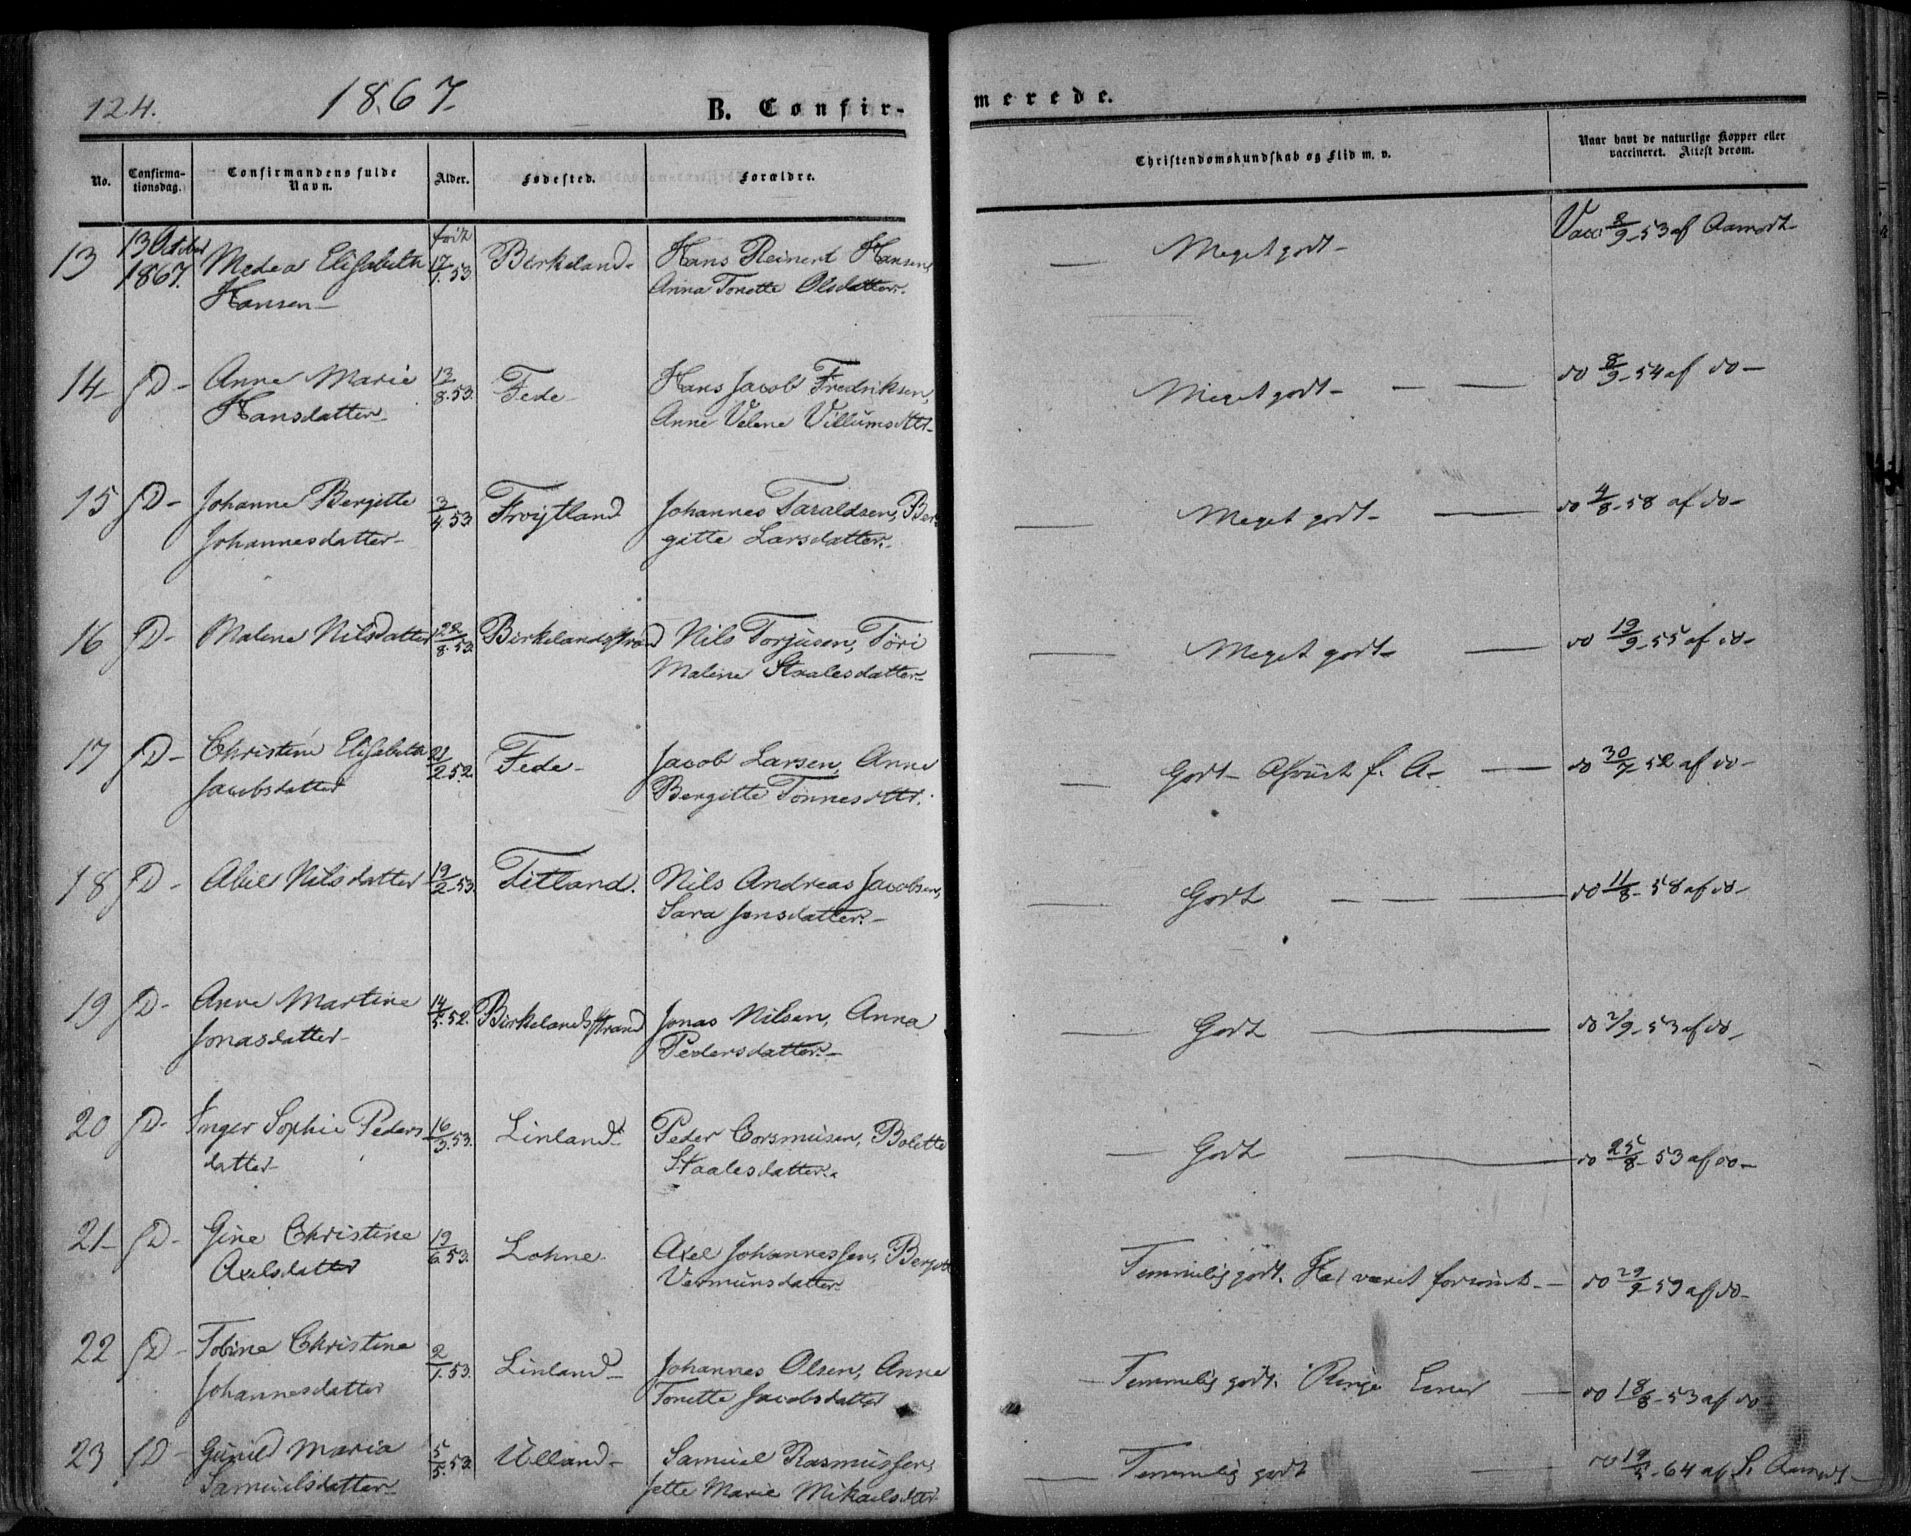 124. 1867. B. Confir-merede.
No. Confirma-tionsdag. Confirmandens fulde Navn. Alder. Fødested. Forældre. Christendomskundskab og Flid m. v. Naar havt de naturlige Kopper eller vaccineret. Attest derom.
13 13 October Medea Elisabeth født 17/1.53 Birkeland- Hans Reinert Hansen, Meget godt- Vacc 8/9-53 af Aamodt-
1867. Hansen- Anna Tonette Olsdatter.
14- D- Anne Marie 13/8.53. Fede- Hans Jacob Fredriksen, Meget godt- do 8/9-54 af do-
Hansdatter- Anne Velene Villumsdttr-
15 D- Johanne Bergitte 3/4.53 Frøytland Johannes Taraldsen, Ber- Meget godt- do 4/8-58 af do-
Johannesdatter- gitte Larsdatter.
16 D- Malene Nilsdatter 28/8.53. Birkelandsstrand Nils Torjusen, Tori Meget godt- do 19/9-55 af do-
Malene Staalesdatter-
17 D- Christine Elisabeth 21/2.52. Fede- Jacob Larsen, Anne Godt- f. A- do 30/7-52 af do-
Jacobsdatter Bergitte Tønnesdttr.
18 D- Abel Nilsdatter 19/2.53. Titland. Nils Andreas Jacobsen, Godt do 11/8-58 af do-
Sara Jensdatter.-
19 D- Anne Martine 14/5.52. Birkelandsstrand Jonas Nilsen, Anna Godt do 2/9-53 af do-
Jonasdatter- Pedersdatter.-
20 D- Inger Sophie Peders 16/3.53. Linland- Peder Corsmusen, Bolette Godt do 25/8-53 af do-
datter- Staalesdatter.
21- D- Gine Christine 19/6.53. Lohne Axel Johannessen, Temmelig godt. Har været forsømt.- do 29/9-59 af do-
Axelsdatter Vermunsdatter-
22 D- Tobine Christine 2/1.53. Linland- Johannes Olsen, Anne Temmelig godt. Ringe Evner do 18/8-53 af do
Johannesdatter Tonette Jacobsdatter
23 D- Gunild Maria 5/5.53. Ulland- Samuel Rasmussen, Temmelig godt do 19/5-64 af S. Aamodt-
Samuelsdatter- Jette Marie Mikaelsdttr